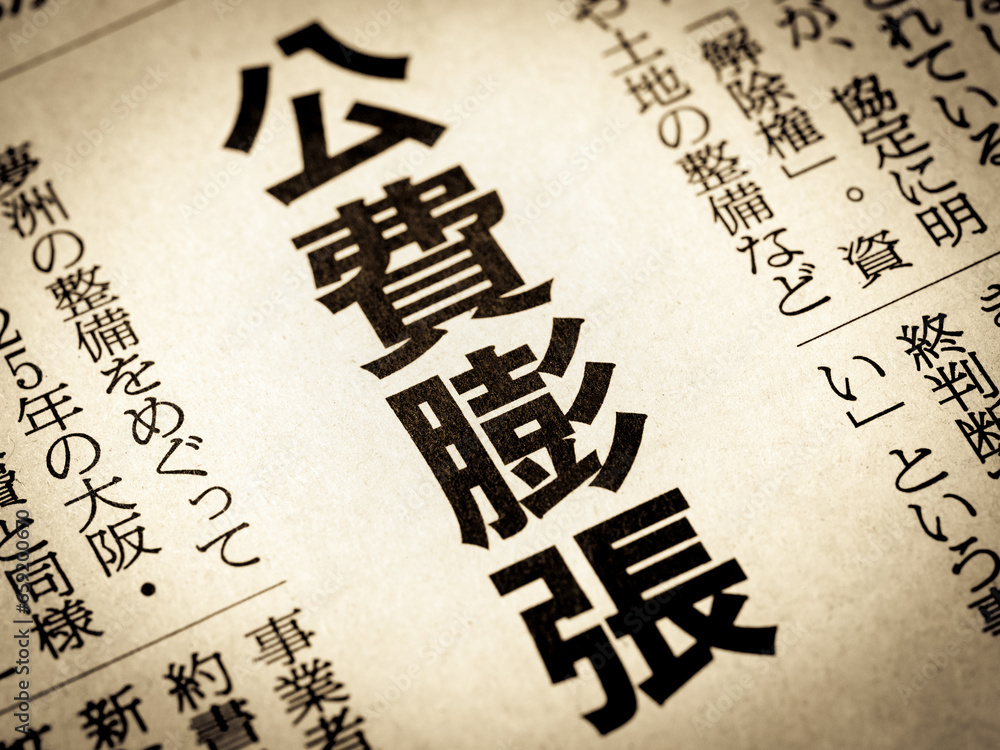 なし
れている
が、協定に明
「解除権」。資
や土地の整備など
終判断
い」という
公費膨張
夢洲の整備をめぐって
25年の大阪・
と同様
事業者
約書
新
Adobe Stock | #659200670